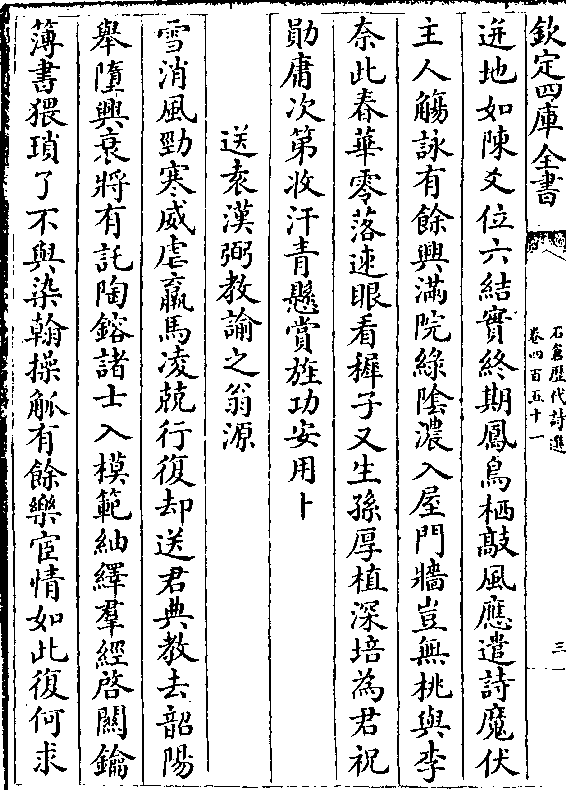 欽定四庫全書
石倉歷代詩選
卷四百五十一
三
迸地如陳爻位六結實終期鳳鳥栖敲風應遣詩魔伏
主人觴詠有餘興滿院綠陰濃入屋門牆豈無桃與李
柰此春華零落速眼看穉子又生孫厚植深培為君祝
勛庸次第收汗青懸賞旌功安用卜
送袁漢弼教諭之翁源
雪消風勁寒威虐羸馬凌兢行復却送君典教去韶陽
舉墮興衰將有託陶鎔諸士入模範紬繹羣經啓關鑰
薄書猥瑣了不與染翰操觚有餘樂宦情如此復何求